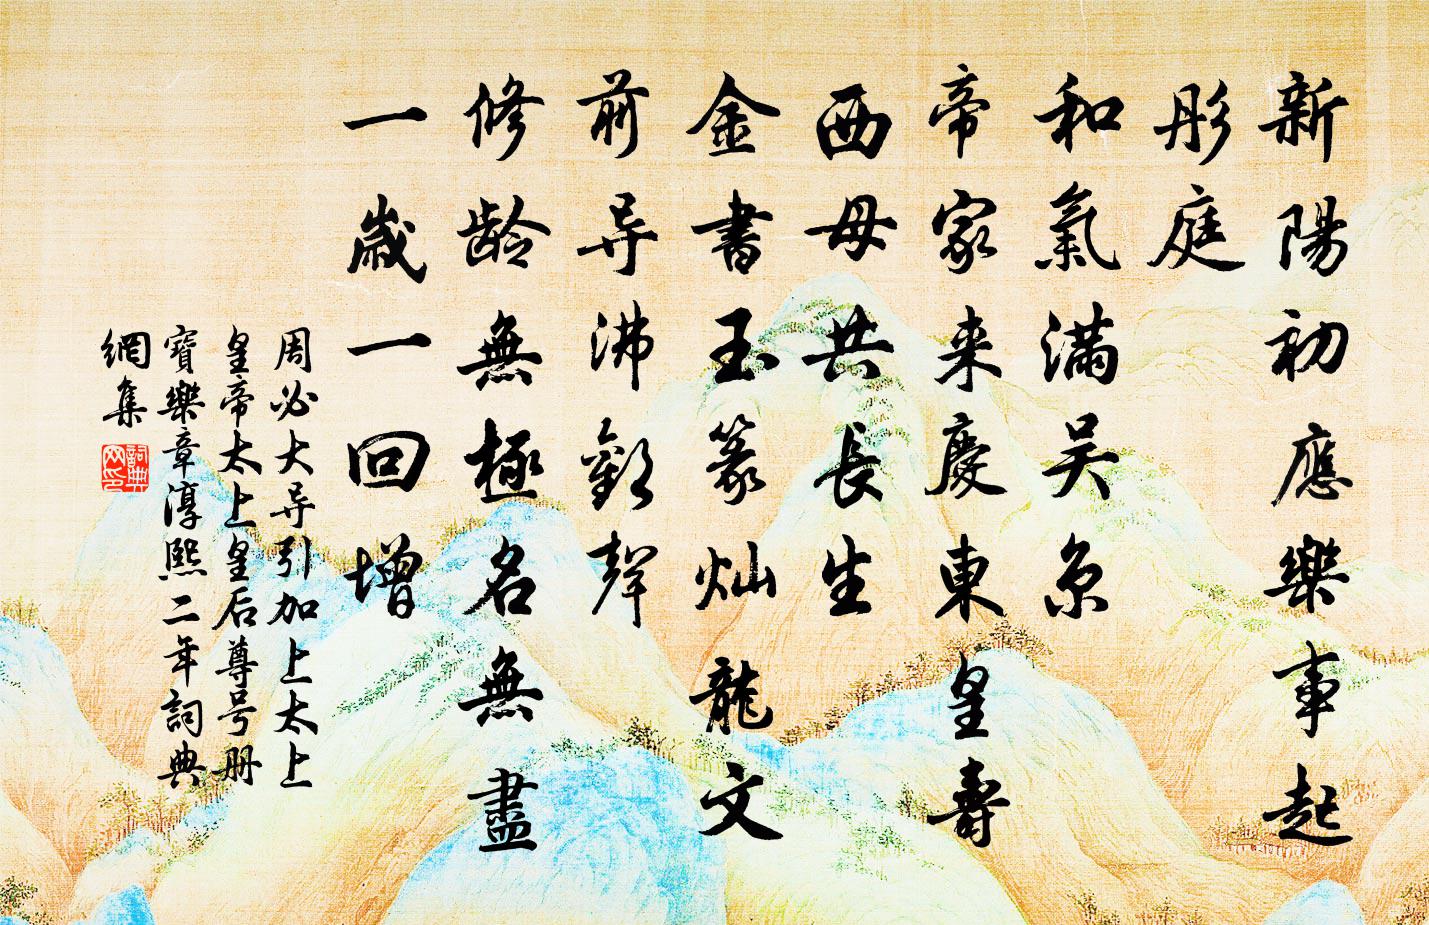 新陽初應樂事起
彤庭
和氣滿吴京
帝家来慶東皇壽
西母共長生
金書玉篆灿龍文
前导沸歡聲
修龄無極名無盡
一歲一回增
周必大导引加上太上
皇帝太上皇后尊号册
寶樂章淳熙二年詞典
網集
詞典
网印